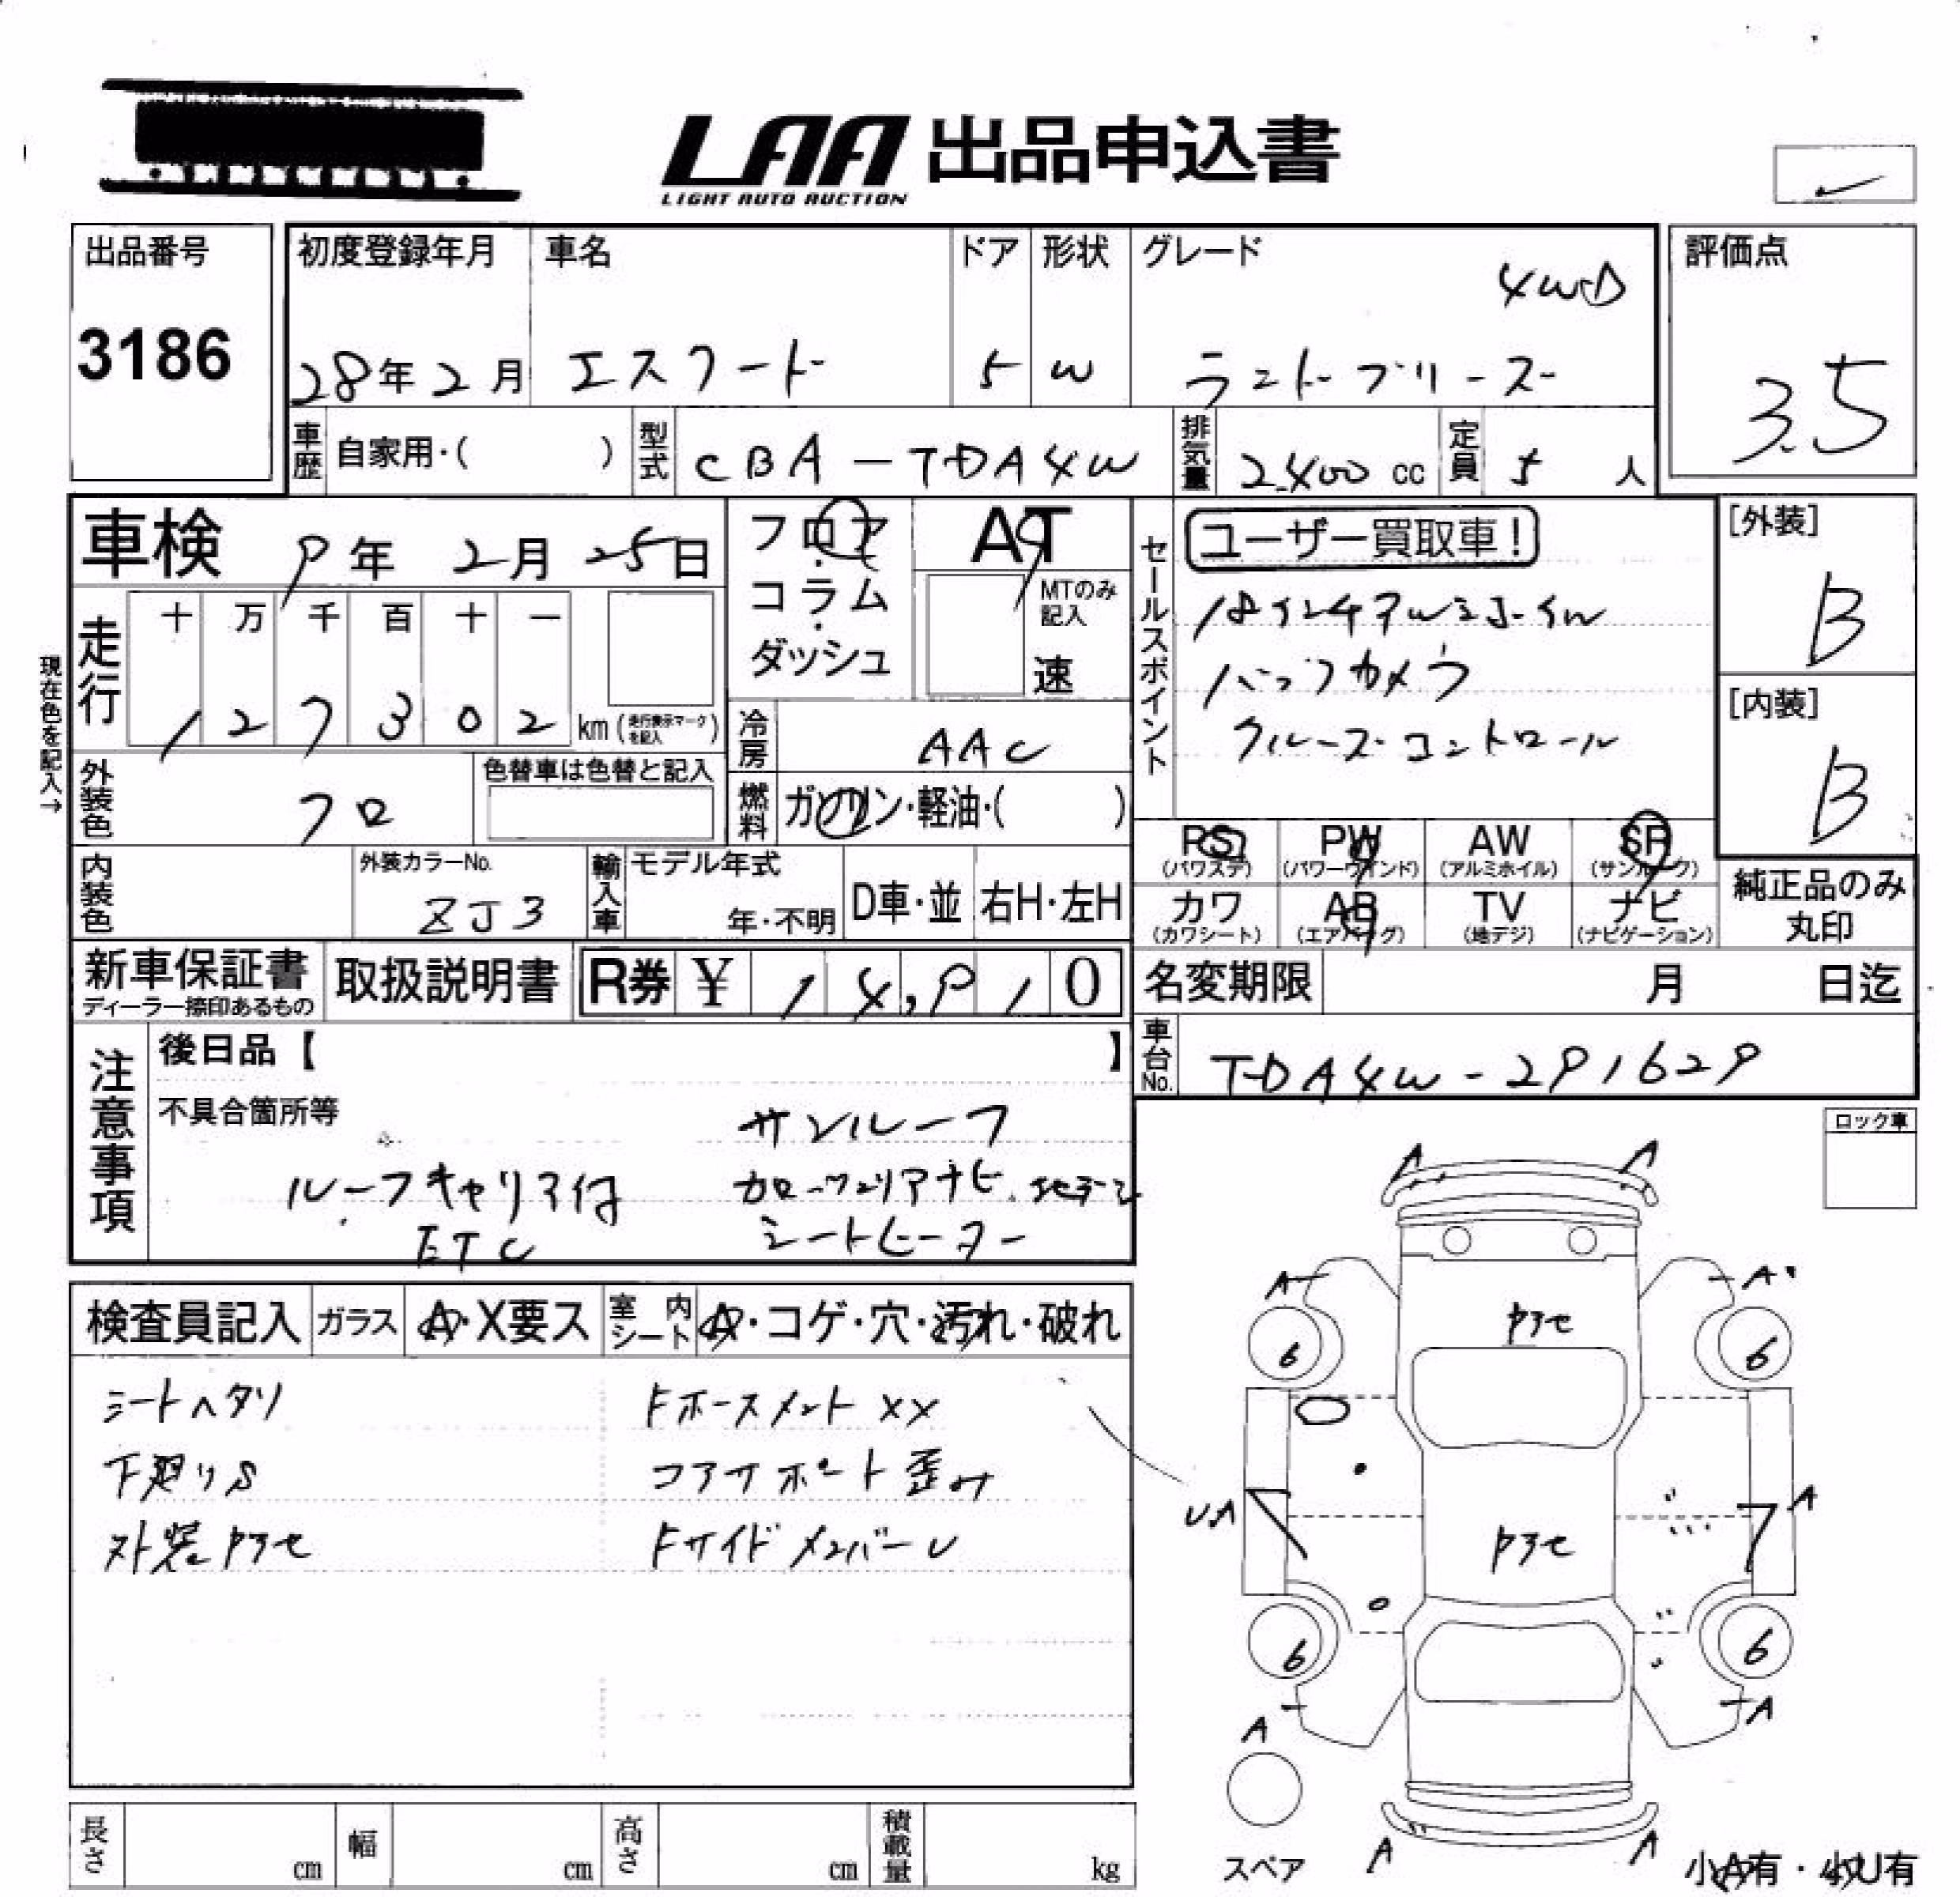 LAA 出品申込書
LIGHT AUTO AUCTION
出品番号
3186
初度登録年月
28年2月
車名
エスクード
ドア
5
形状
W
グレード
4WD
ランドブリーズ
評価点
3.5
車歴 自家用・( )
型式 CBA-TDA4W
排気量 2400 cc
定員 5 人
車検 9年 2月 25日
フロア・コラム・ダッシュ
AT
MTのみ記入
速
セールスポイント
ユーザー買取車!
バックカメラ
クルーズコントロール
[外装]
B
[内装]
B
現在色を記入→
走行
十 万 千 百 十 一
1 2 7 3 0 2 km (走行表示マークを記入)
冷房 AAC
燃料 ガソリン・軽油・( )
外装色 クロ
色替車は色替と記入
内装色
外装カラーNo.
ZJ3
輸入車
モデル年式
年・不明
D車・並
右H・左H
PS (パワステ)
PW (パワーウインド)
AW (アルミホイル)
SR (サンルーフ)
カワ (カワシート)
AB (エアバッグ)
TV (地デジ)
ナビ (ナビゲーション)
純正品のみ丸印
新車保証書
ディーラー捺印あるもの
取扱説明書
R券 ¥ 14,910
名変期限 月 日迄
車台No. TDA4W-291629
注意事項
後日品【 】
不具合箇所等
サンルーフ
ルーフキャリア付
カロッツェリアナビ、地デジ
ETC
シートヒーター
ロック車
検査員記入
ガラス
A・X要ス
室内シート
A・コゲ・穴・汚れ・破れ
シートヘタリ
Fホースメント XX
下廻りS
コアサポート歪み
外装ヤケセ
FサイドメンバーU
A A
A A
6 6
UA A
6 6
A A
A A
スペア
小A有・小U有
長さ cm
幅 cm
高さ cm
積載量 kg